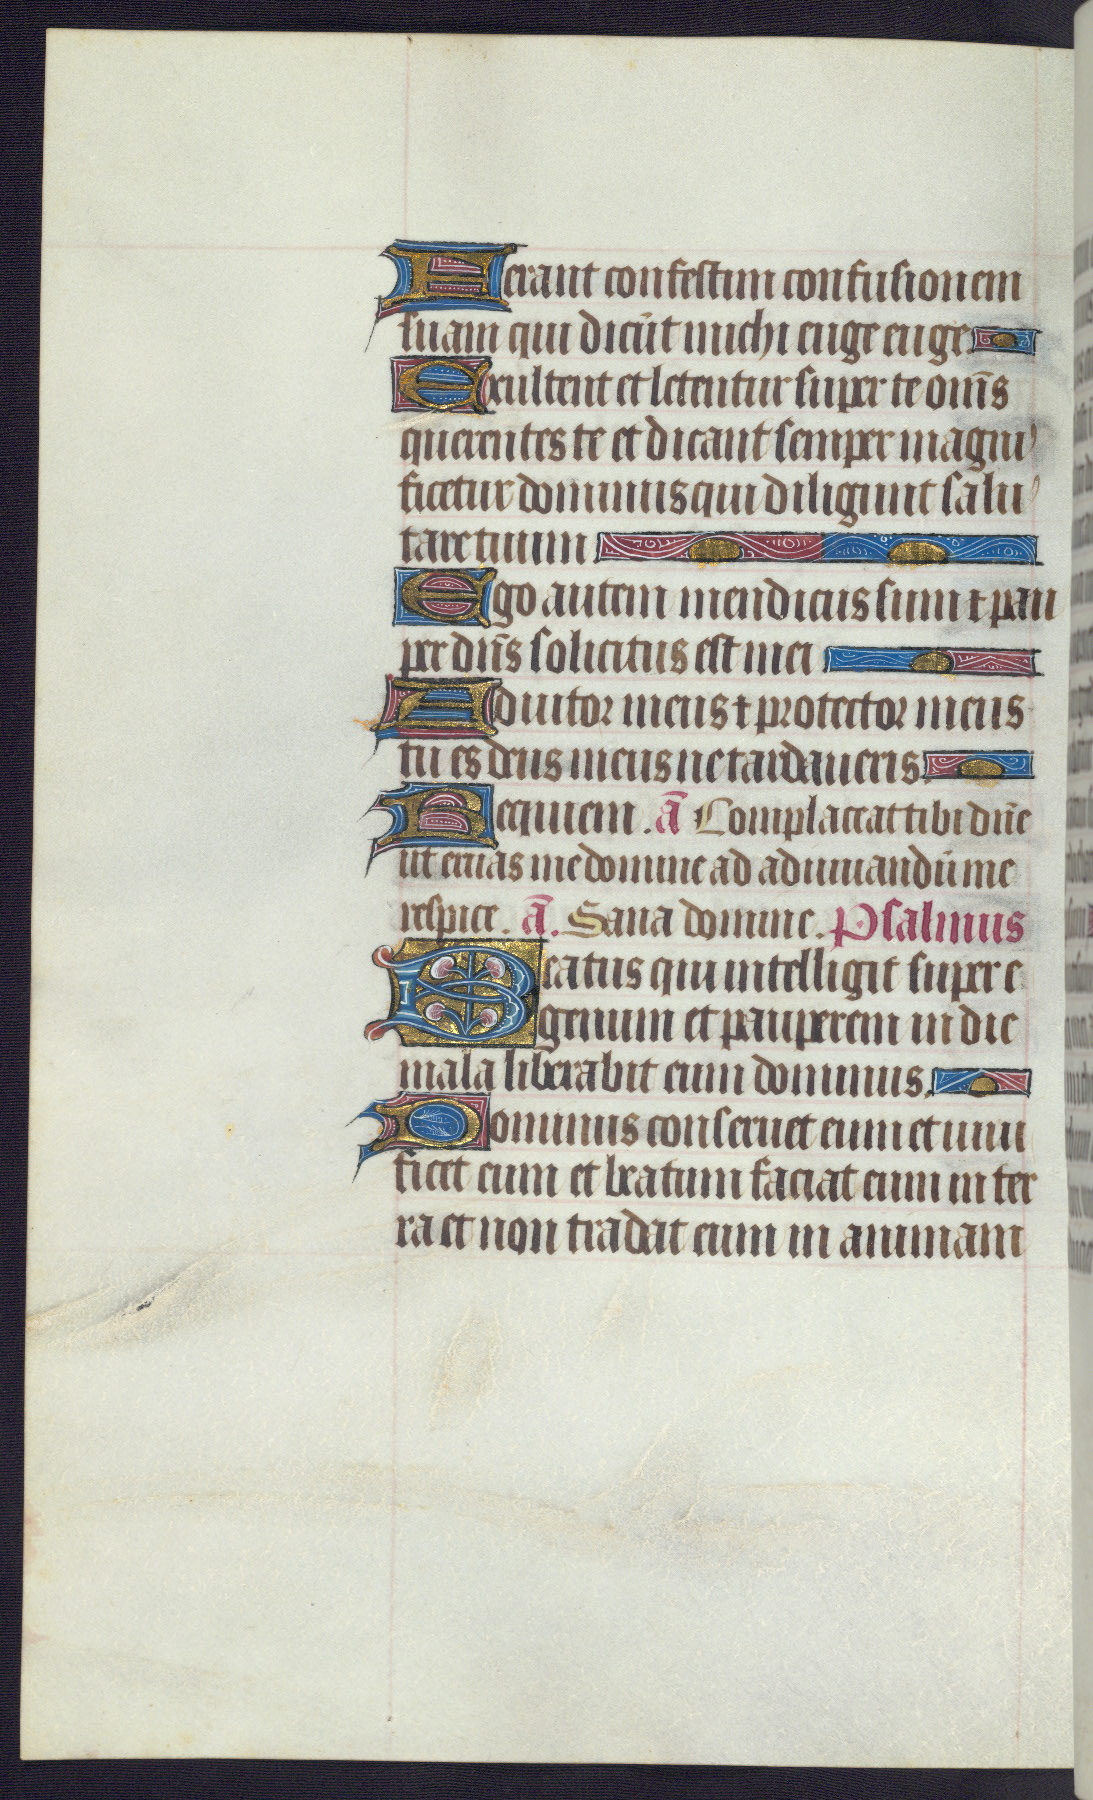 Ferant confestim confusionem
suam qui dicūt michi euge euge.
Exultent et letentur super te om̄s
querentes te et dicant semper magni
ficetur dominus qui diligunt salu
tare tuum
Ego autem mendicus sum ⁊ pau
per dn̄s solicitus est mei
Adiutor meus ⁊ protector meus
tu es deus meus ne tardaueris.
Requiem. ā Complaceat tibi dn̄e
ut eruas me domine ad adiuuandū me
respice. ā. Sana domine. Psalmus
Beatus qui intelligit super e
genum et pauperem in die
mala liberabit eum dominus.
Dominus conseruet eum et uiui
ficet eum et beatum faciat eum in ter
ra et non tradat eum in animam